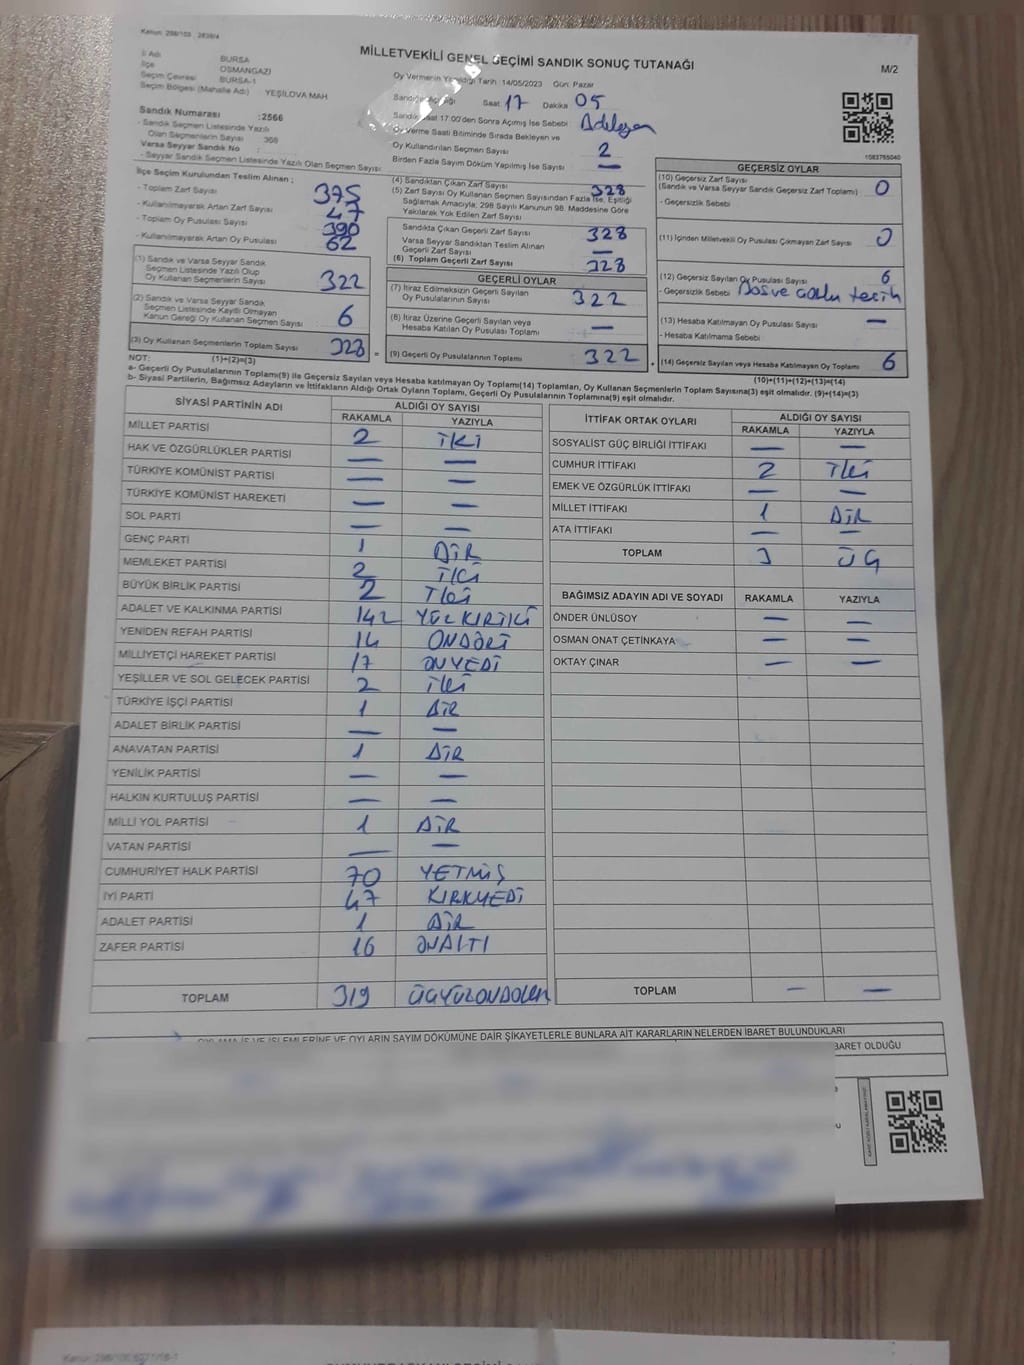 Kanun: 298/103 , 2839/4
MİLLETVEKİLİ GENEL SEÇİMİ SANDIK SONUÇ TUTANAĞI
M/2
İl Adı BURSA
İlçe OSMANGAZİ
Seçim Çevresi BURSA-1
Seçim Bölgesi (Mahalle Adı) YEŞİLOVA MAH
Sandık Numarası :2566
- Sandık Seçmen Listesinde Yazılı
Olan Seçmenlerin Sayısı : 368
Varsa Seyyar Sandık No :
- Seyyar Sandık Seçmen Listesinde Yazılı Olan Seçmen Sayısı:
Oy Vermenin Yapıldığı Tarih :14/05/2023 Gün: Pazar
Saat :17 Dakika :05
Sandık Saat 17:00'den Sonra Açılmış İse Sebebi :
Oy Verme Saati Bitiminde Sırada Bekleyen ve
Oy Kullandırılan Seçmen Sayısı 2
Birden Fazla Sayım Döküm Yapılmış İse Sayısı —
1083755040
İlçe Seçim Kurulundan Teslim Alınan ;
- Toplam Zarf Sayısı 375
- Kullanılmayarak Artan Zarf Sayısı 47
- Toplam Oy Pusulası Sayısı 390
- Kullanılmayarak Artan Oy Pusulası 62
(1) Sandık ve Varsa Seyyar Sandık
Seçmen Listesinde Yazılı Olup
Oy Kullanan Seçmenlerin Sayısı 322
(2) Sandık ve Varsa Seyyar Sandık
Seçmen Listesinde Kayıtlı Olmayan
Kanun Gereği Oy Kullanan Seçmen Sayısı 6
(3) Oy Kullanan Seçmenlerin Toplam Sayısı 328 =
(4) Sandıktan Çıkan Zarf Sayısı 328
(5) Zarf Sayısı Oy Kullanan Seçmen Sayısından Fazla İse, Eşitliği
Sağlamak Amacıyla, 298 Sayılı Kanunun 98. Maddesine Göre
Yakılarak Yok Edilen Zarf Sayısı —
Sandıkta Çıkan Geçerli Zarf Sayısı 328
Varsa Seyyar Sandıktan Teslim Alınan
Geçerli Zarf Sayısı —
(6) Toplam Geçerli Zarf Sayısı 328
GEÇERLİ OYLAR
(7) İtiraz Edilmeksizin Geçerli Sayılan
Oy Pusulalarının Sayısı 322
(8) İtiraz Üzerine Geçerli Sayılan veya
Hesaba Katılan Oy Pusulası Toplamı —
(9) Geçerli Oy Pusulalarının Toplamı 322
GEÇERSİZ OYLAR
(10) Geçersiz Zarf Sayısı
(Sandık ve Varsa Seyyar Sandık Geçersiz Zarf Toplamı) 0
- Geçersizlik Sebebi
(11) İçinden Milletvekili Oy Pusulası Çıkmayan Zarf Sayısı 0
(12) Geçersiz Sayılan Oy Pusulası Sayısı 6
- Geçersizlik Sebebi
(13) Hesaba Katılmayan Oy Pusulası Sayısı —
- Hesaba Katılmama Sebebi
(14) Geçersiz Sayılan veya Hesaba Katılmayan Oy Toplamı 6
NOT: (1)+(2)=(3) (10)+(11)+(12)+(13)=(14)
a- Geçerli Oy Pusulalarının Toplamı(9) ile Geçersiz Sayılan veya Hesaba katılmayan Oy Toplamı(14) Toplamları, Oy Kullanan Seçmenlerin Toplam Sayısına(3) eşit olmalıdır. (9)+(14)=(3)
b- Siyasi Partilerin, Bağımsız Adayların ve İttifakların Aldığı Ortak Oyların Toplamı, Geçerli Oy Pusulalarının Toplamına(9) eşit olmalıdır.
SİYASİ PARTİNİN ADI ALDIĞI OY SAYISI
RAKAMLA YAZIYLA
MİLLET PARTİSİ 2 İKİ
HAK VE ÖZGÜRLÜKLER PARTİSİ — —
TÜRKİYE KOMÜNİST PARTİSİ — —
TÜRKİYE KOMÜNİST HAREKETİ — —
SOL PARTİ — —
GENÇ PARTİ 1 BİR
MEMLEKET PARTİSİ 2 İKİ
BÜYÜK BİRLİK PARTİSİ 2 İKİ
ADALET VE KALKINMA PARTİSİ 142 YÜZKIRKİKİ
YENİDEN REFAH PARTİSİ 14 ONDÖRT
MİLLİYETÇİ HAREKET PARTİSİ 17 ONYEDİ
YEŞİLLER VE SOL GELECEK PARTİSİ 2 İKİ
TÜRKİYE İŞÇİ PARTİSİ 1 BİR
ADALET BİRLİK PARTİSİ — —
ANAVATAN PARTİSİ 1 BİR
YENİLİK PARTİSİ — —
HALKIN KURTULUŞ PARTİSİ — —
MİLLİ YOL PARTİSİ 1 BİR
VATAN PARTİSİ — —
CUMHURİYET HALK PARTİSİ 70 YETMİŞ
İYİ PARTİ 47 KIRKYEDİ
ADALET PARTİSİ 1 BİR
ZAFER PARTİSİ 16 ONALTI
TOPLAM 319
İTTİFAK ORTAK OYLARI ALDIĞI OY SAYISI
RAKAMLA YAZIYLA
SOSYALİST GÜÇ BİRLİĞİ İTTİFAKI — —
CUMHUR İTTİFAKI 2 İKİ
EMEK VE ÖZGÜRLÜK İTTİFAKI — —
MİLLET İTTİFAKI 1 BİR
ATA İTTİFAKI — —
TOPLAM 3 ÜÇ
BAĞIMSIZ ADAYIN ADI VE SOYADI RAKAMLA YAZIYLA
ÖNDER ÜNLÜSOY — —
OSMAN ONAT ÇETİNKAYA — —
OKTAY ÇINAR — —
TOPLAM — —
VE OYLARIN SAYIM DÖKÜMÜNE DAİR ŞİKAYETLERLE BUNLARA AİT KARARLARIN NELERDEN İBARET BULUNDUKLARI
BARET OLDUĞU